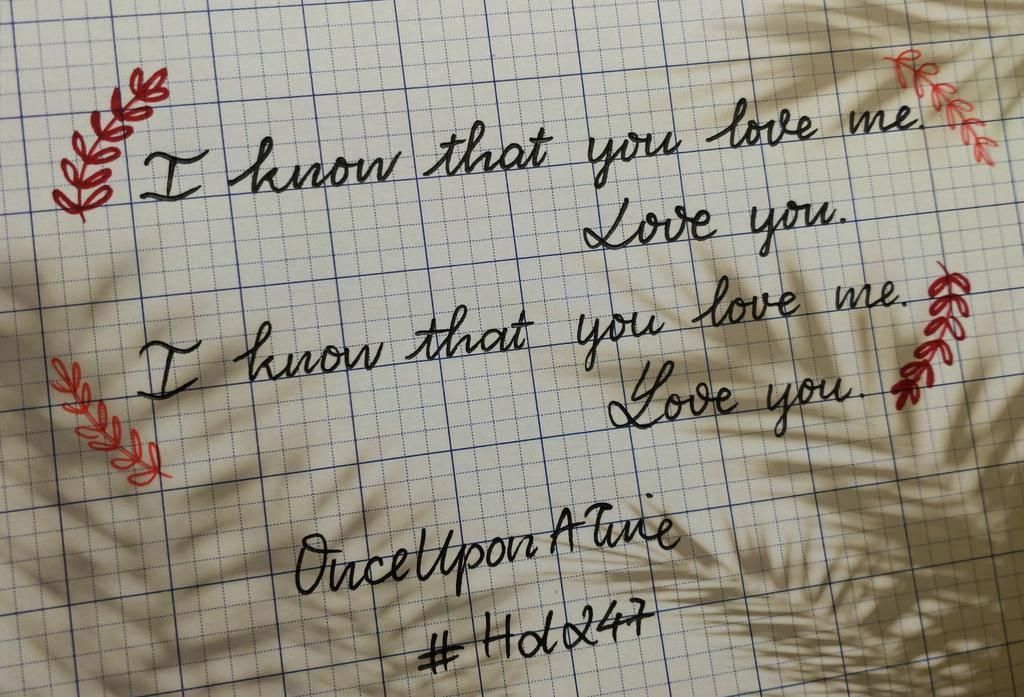 I know that you love me.
Love you.
I know that you love me.
Love you.
OnceUponATime
#Hd247